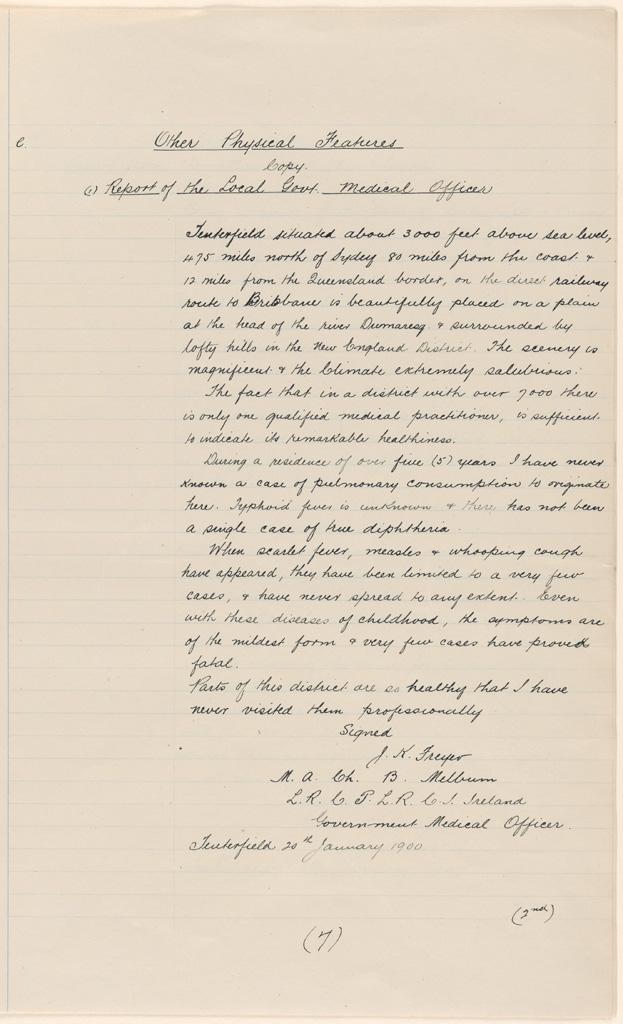 C.
Other Physical Features
Copy.
(1) Report of the Local Govt. Medical Officer
Tenterfield situated about 3000 feet above sea level,
475 miles north of Sydney 80 miles from the coast &
12 miles from the Queensland border, on the direct railway
route to Brisbane is beautifully placed on a plain
at the head of the river Dumaresq & surrounded by
lofty hills in the New England District. The scenery is
magnificent & the Climate extremely salubrious.
The fact that in a district with over 7000 there
is only one qualified medical practitioner, is sufficient
to indicate its remarkable healthiness.
During a residence of over five (5) years I have never
known a case of pulmonary consumption to originate
here. Typhoid fever is unknown & there has not been
a single case of true diphtheria.
When scarlet fever, measles & whooping cough
have appeared, they have been limited to a very few
cases, & have never spread to any extent. Even
with these diseases of childhood, the symptoms are
of the mildest form & very few cases have proved
fatal.
Parts of this district are so healthy that I have
never visited them professionally
Signed
J. K. Freyer
M. A. Ch. B. Melburn
L. R. C. P. L. R. C. S. Ireland
Government Medical Officer.
Tenterfield 20th January 1900
(2nd)
(7)